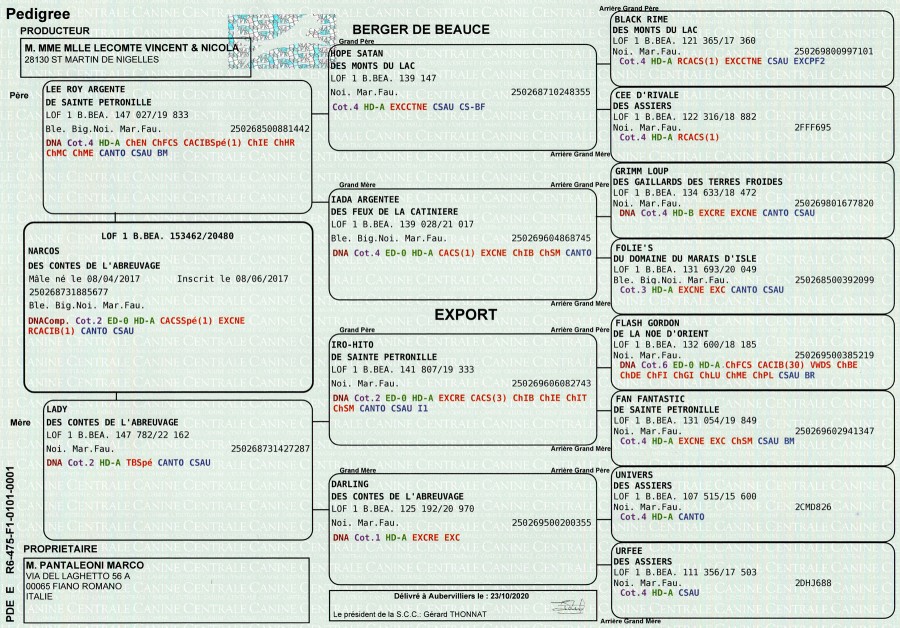 Pedigree
PRODUCTEUR
M. MME MLLE LECOMTE VINCENT & NICOLA
28130 ST MARTIN DE NIGELLES
BERGER DE BEAUCE
Père
LEE ROY ARGENTE
DE SAINTE PETRONILLE
LOF 1 B.BEA. 147 027/19 833
Ble. Big.Noi. Mar.Fau. 250268500881442
DNA Cot.4 HD-A ChEN ChFCS CACIBSpé(1) ChIE ChHR
ChMC ChME CANTO CSAU BM
LOF 1 B.BEA. 153462/20480
NARCOS
DES CONTES DE L'ABREUVAGE
Mâle né le 08/04/2017 Inscrit le 08/06/2017
250268731885677
Ble. Big.Noi. Mar.Fau.
DNAComp. Cot.2 ED-0 HD-A CACSSpé(1) EXCNE
RCACIB(1) CANTO CSAU
Mère
LADY
DES CONTES DE L'ABREUVAGE
LOF 1 B.BEA. 147 782/22 162
Noi. Mar.Fau. 250268731427287
DNA Cot.2 HD-A TBSpé CANTO CSAU
PROPRIETAIRE
M. PANTALEONI MARCO
VIA DEL LAGHETTO 56 A
00065 FIANO ROMANO
ITALIE
PDE E R6-475-F1-0101-0001
Grand Père
HOPE SATAN
DES MONTS DU LAC
LOF 1 B.BEA. 139 147
Noi. Mar.Fau. 250268710248355
Cot.4 HD-A EXCCTNE CSAU CS-BF
Grand Mère
IADA ARGENTEE
DES FEUX DE LA CATINIERE
LOF 1 B.BEA. 139 028/21 017
Ble. Big.Noi. Mar.Fau. 250269604868745
DNA Cot.4 ED-0 HD-A CACS(1) EXCNE ChIB ChSM CANTO
EXPORT
Grand Père
IRO-HITO
DE SAINTE PETRONILLE
LOF 1 B.BEA. 141 807/19 333
Noi. Mar.Fau. 250269606082743
DNA Cot.2 ED-0 HD-A EXCRE CACS(3) ChIB ChIE ChIT
ChSM CANTO CSAU I1
Grand Mère
DARLING
DES CONTES DE L'ABREUVAGE
LOF 1 B.BEA. 125 192/20 970
Noi. Mar.Fau. 250269500200355
DNA Cot.1 HD-A EXCRE EXC
Délivré à Aubervilliers le : 23/10/2020
Le président de la S.C.C.: Gérard THONNAT
Arrière Grand Père
BLACK RIME
DES MONTS DU LAC
LOF 1 B.BEA. 121 365/17 360
Noi. Mar.Fau. 250269800997101
Cot.4 HD-A RCACS(1) EXCCTNE CSAU EXCPF2
CEE D'RIVALE
DES ASSIERS
LOF 1 B.BEA. 122 316/18 882
Noi. Mar.Fau. 2FFF695
Cot.4 HD-A RCACS(1)
Arrière Grand Mère
Arrière Grand Père
GRIMM LOUP
DES GAILLARDS DES TERRES FROIDES
LOF 1 B.BEA. 134 633/18 472
Noi. Mar.Fau. 250269801677820
DNA Cot.4 HD-B EXCRE EXCNE CANTO CSAU
FOLIE'S
DU DOMAINE DU MARAIS D'ISLE
LOF 1 B.BEA. 131 693/20 049
Ble. Big.Noi. Mar.Fau. 250268500392099
Cot.3 HD-A EXCNE EXC CANTO CSAU
Arrière Grand Mère
Arrière Grand Père
FLASH GORDON
DE LA NOE D'ORIENT
LOF 1 B.BEA. 132 600/18 185
Noi. Mar.Fau. 250269500385219
DNA Cot.6 ED-0 HD-A ChFCS CACIB(30) VWDS ChBE
ChDE ChFI ChGI ChLU ChME ChPL CSAU BR
FAN FANTASTIC
DE SAINTE PETRONILLE
LOF 1 B.BEA. 131 054/19 849
Noi. Mar.Fau. 250269602941347
Cot.4 HD-A EXCNE EXC ChSM CSAU BM
Arrière Grand Mère
Arrière Grand Père
UNIVERS
DES ASSIERS
LOF 1 B.BEA. 107 515/15 600
Noi. Mar.Fau. 2CMD826
Cot.4 HD-A CANTO
URFEE
DES ASSIERS
LOF 1 B.BEA. 111 356/17 503
Noi. Mar.Fau. 2DHJ688
Cot.4 HD-A CSAU
Arrière Grand Mère